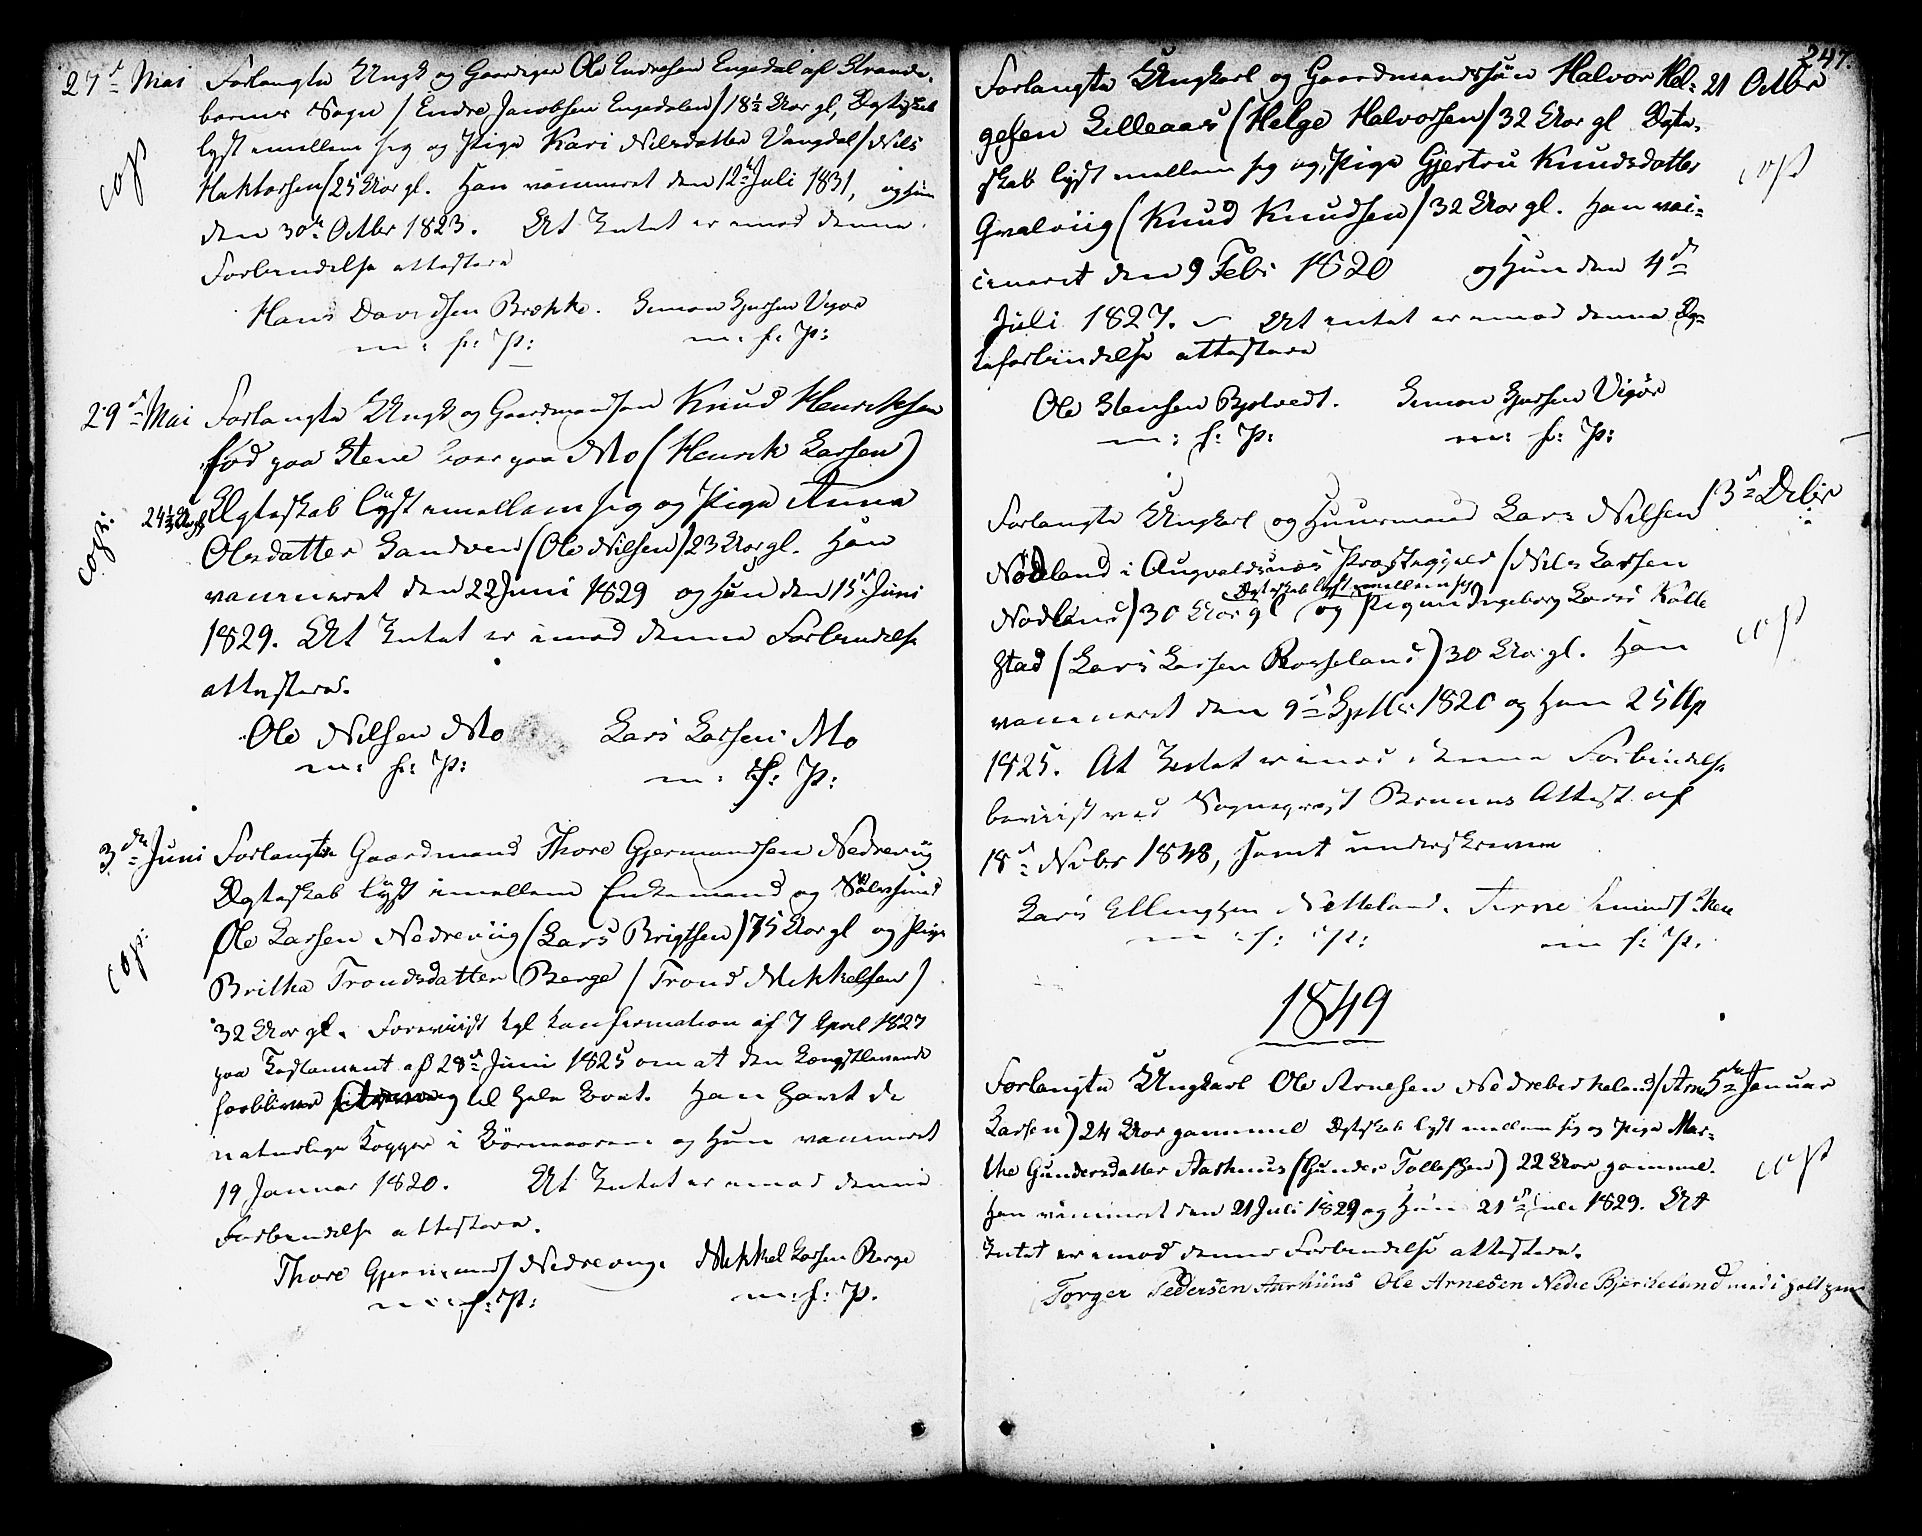 27de Mai Forlangte Ungk og Gaardeger Ole Endresen Engedal af Strande-
barms Sogn /Endre Jacobsen Engedalen/ 18½ Aar gl, Ægteskab
cop
lyst imellem sig og Pige Kari Nilsdatter Vangdal /Nils
Haktorsen/ 25 Aar gl. Han vaxineret den 12te Juli 1831, og hun
den 30te Octbr 1823. At Intet er imod denne
Forbindelse attestere
Hans Davidsen Brekke. Simon Vigør
m: f: P: m. f. P:
29de Mai Forlangte Ungk og Gaardmandsøn Knud Henriksen
fød paa Stene boer paa Mo (Henrik Larsen)
24½ Aar gl Ægteskab lyst imellem sig og Pige Anna
cop:
Olesdatter Sandven (Ole Nilsen) 23 Aar gl. Han
vaxineret den 22 Juni 1829 og Hun den 15de Juni
1829. At Intet er imod denne Forbindelse
attestere.
Ole Nilsen Mo Lars Larsen Mo
m: f: P: m: f: P:
3die Juni Forlangte Gaardmand Thore Gjermundsen Nedreviig
Ægteskab lyst imellem Enkemand og Sølvsmed
Ole Larsen Nedreviig (Lars Brigtsen) 75 Aar gl og Pige
cop:
Britha Trondsdatter Berge /Trond Mikkelsen/
32 Aar gl. Foreviist kgl Confirmation af 7 April 1827
paa Testament af 28de Juni 1825 om at den Længstlevende
forbliver til hele Boet. Han havt de
naturlige Kopper i Børneaarene og Hun vaxineret
19 Januar 1820. At Intet er imod denne
Forbindelse attestere.
Thore Gjermunds Nedreviig. Mikkel Larsen Berge
m: f: P: m: f: P.
247.
Forlangte Ungkarl og Gaardmandssøn Halvor Hel- 21 Octbr
gesen Lilleaas (Helge Halvorsen/ 32 Aar gl Ægte-
skab lyst mellem sig og Pige Gjertru Knudsdatter
cop
Qvalviig (Knud Knudsen/ 32 Aar gl. Han vac-
cineret den 9 Febr 1820 og Hun den 4de
Juli 1827. At intet er imod denne Æg-
teforbindelse attestere
Ole Stensen Bjotvedt. Simon Vigør
m: f: P: m: f: P:
Forlangte Ungkarl og Huusmand Lars Nilsen 13de Debr
Nødland i Augvaldsnæs Præstegjeld /Nils Larsen
Ægteskab lyst imellem sig
Nodland) 30 Aar gl og Pigen Ingeborg Larsd Kolle
stad (Lars Larsen Rosseland) 30 Aar gl. Han
cop
vaxineret den 9de Septbr 1820 og Hun 25
1825. At Intet er imod denne Forbindelse
beviist ved Sognepræst Bruuns Attest af
18de Novbr 1848, samt underskrevne
Lars Ellingsen Netteland.
m: f: P: m f: P.
1849
Forlangte Ungkarl Ole Arnesen Nedrebirkeland /Arne 5te Januar
Larsen) 24 Aar gammel Ægteskab lyst mellem sig og Pige Mar-
the Gundersdatter Aarhuus (Gunder Tollefsen) 22 Aar gammel.
cop
Han vaxineret den 21 Juli 1829 og Hun 21de Juli 1829. At
Intet er imod denne Forbindelse attestere.
Torger Pedersen Aarhuus Ole Arnesen Nedre Bjerkeland med i holt pen